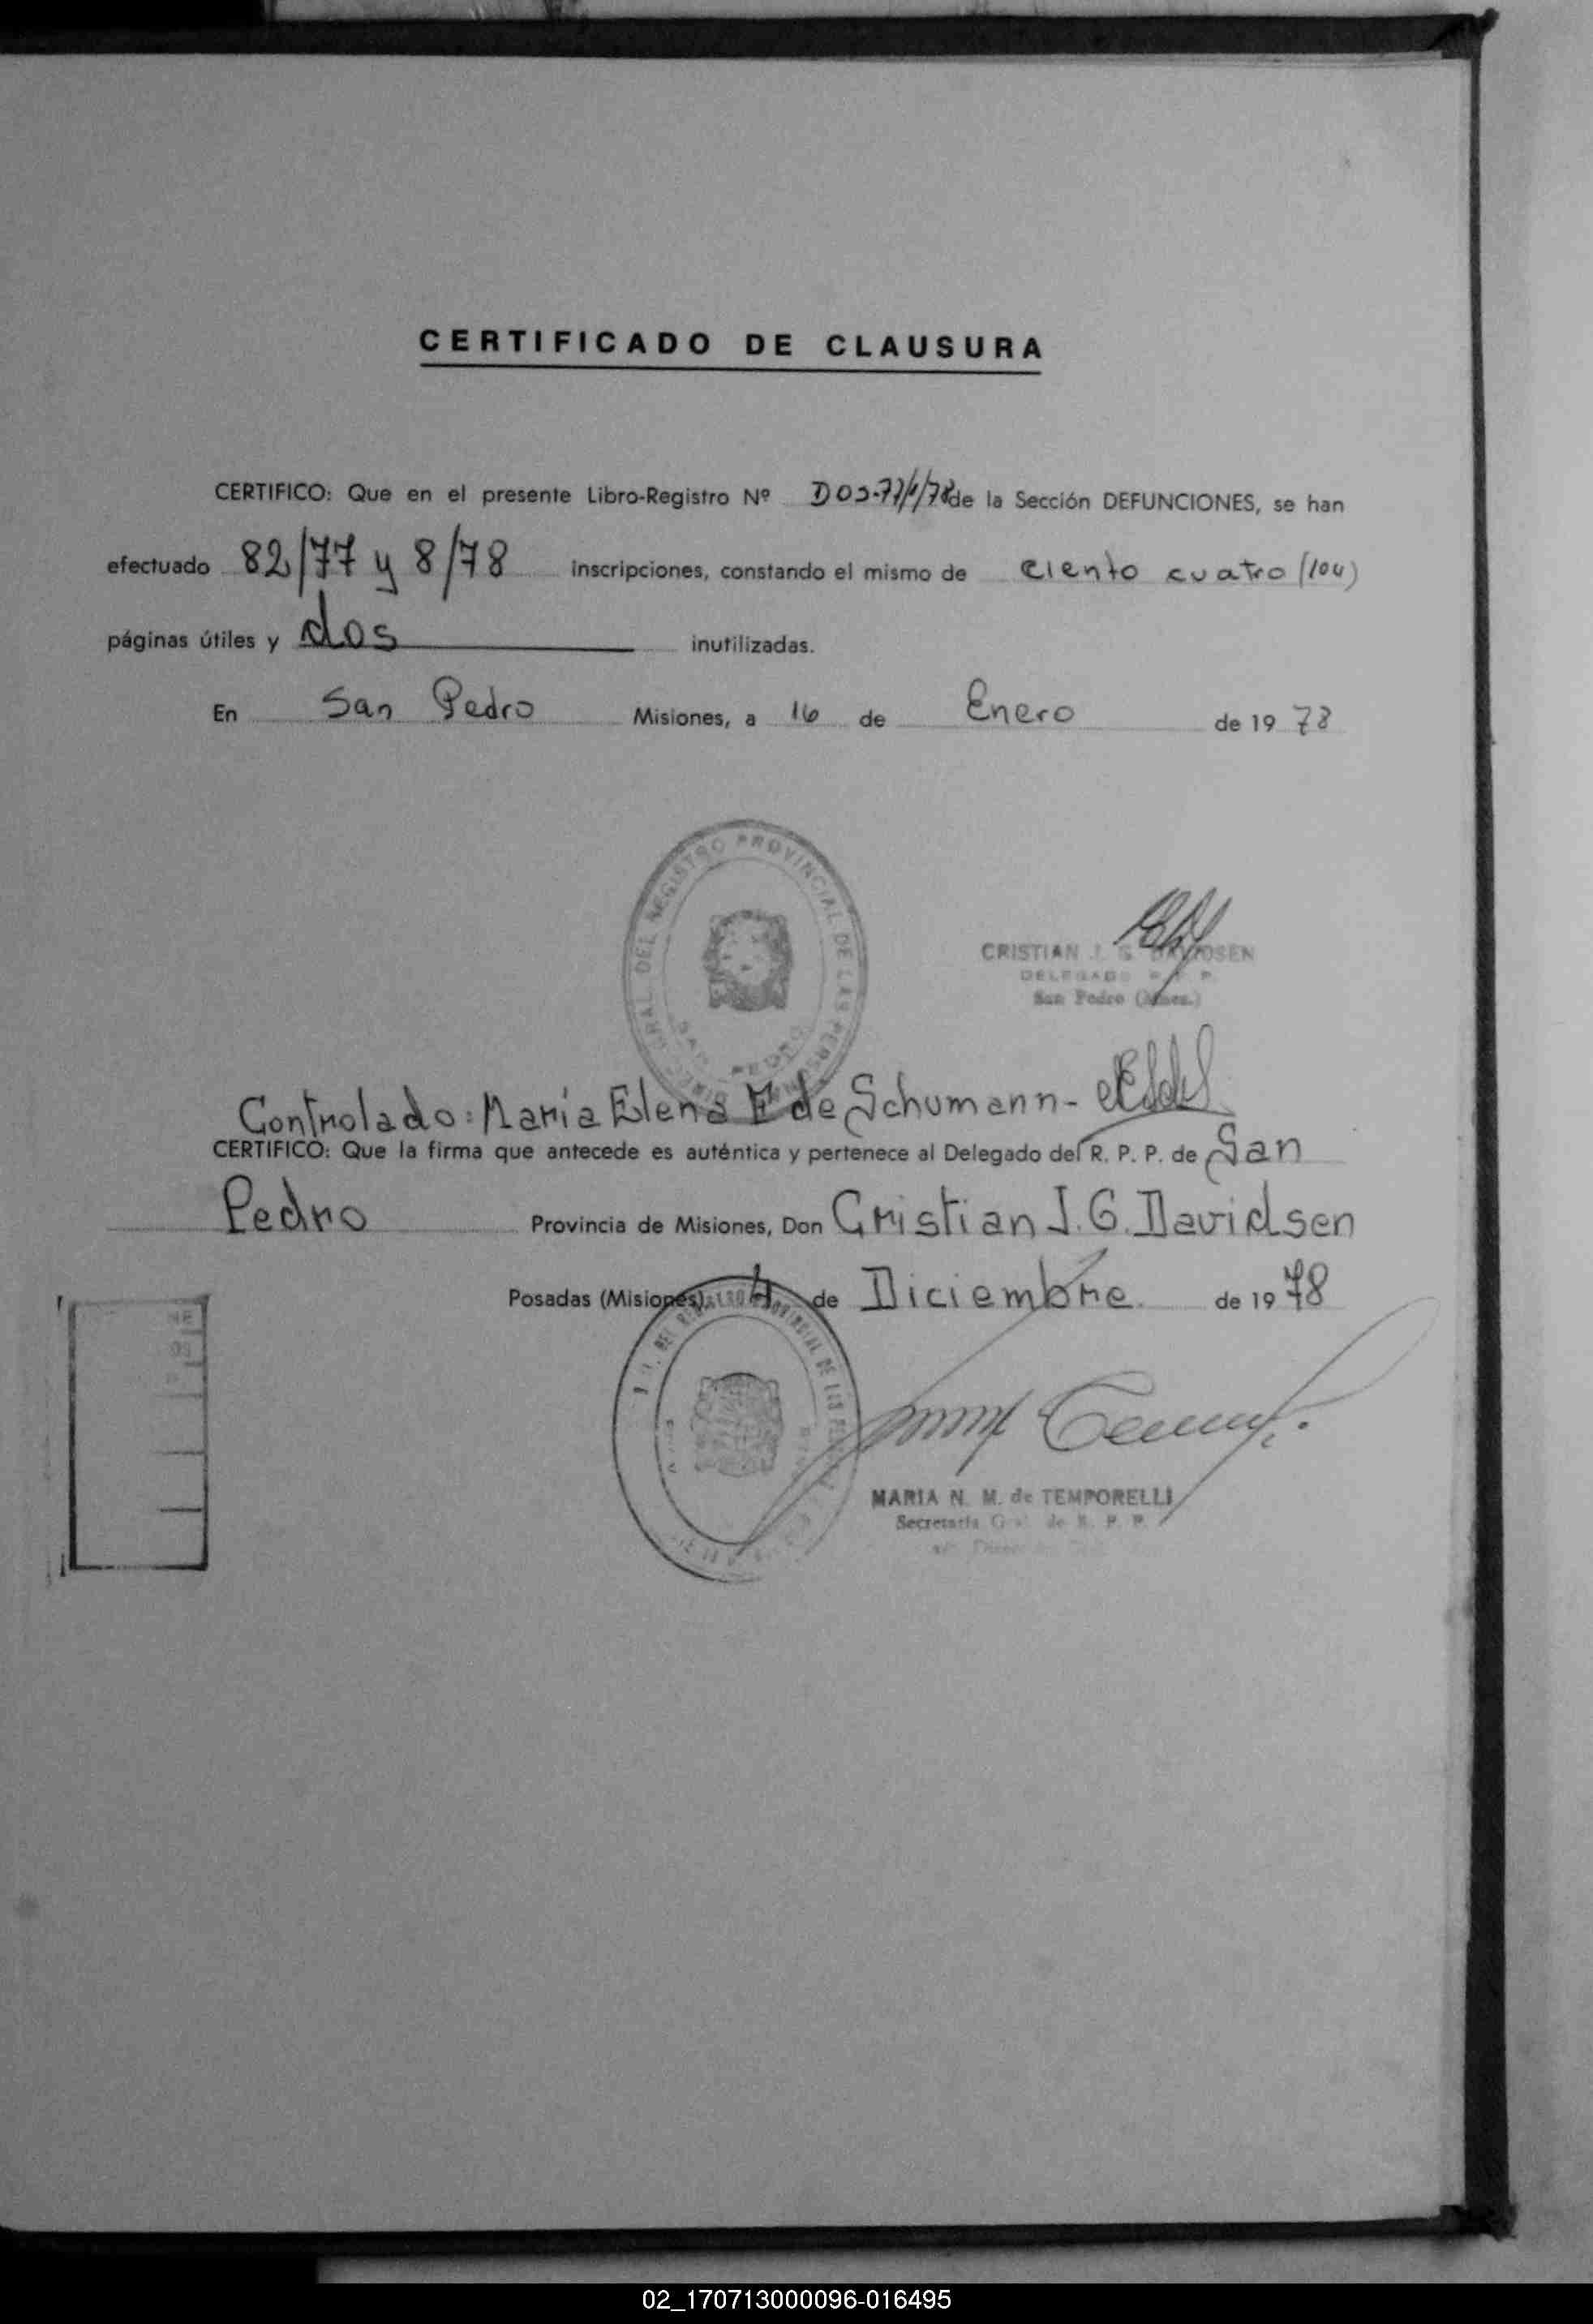 CERTIFICADO DE CLAUSURA
CERTIFICO: Que en el presente Libro-Registro Nº DOS-77/1/78 de la Sección DEFUNCIONES, se han
efectuado 82/77 y 8/78 inscripciones, constando el mismo de ciento cuatro (104)
páginas útiles y dos inutilizadas.
En San Pedro Misiones, a 16 de Enero de 1978
GRAL. DEL REGISTRO PROVINCIAL DE LAS PERSONAS
SAN PEDRO
CRISTIAN J. G. DAVIDSEN
DELEGADO R. P. P.
San Pedro (Mnes.)
Controlado: María Elena F de Schumann-
CERTIFICO: Que la firma que antecede es auténtica y pertenece al Delegado del R. P. P. de San
Pedro Provincia de Misiones, Don Cristian J. G. Davidsen
Posadas (Misiones), 4 de Diciembre de 1978
DEL REGISTRO PROVINCIAL DE LAS
MARIA N. M. de TEMPORELLI
Secretaria Gral. de R. P. P.
02_170713000096-016495